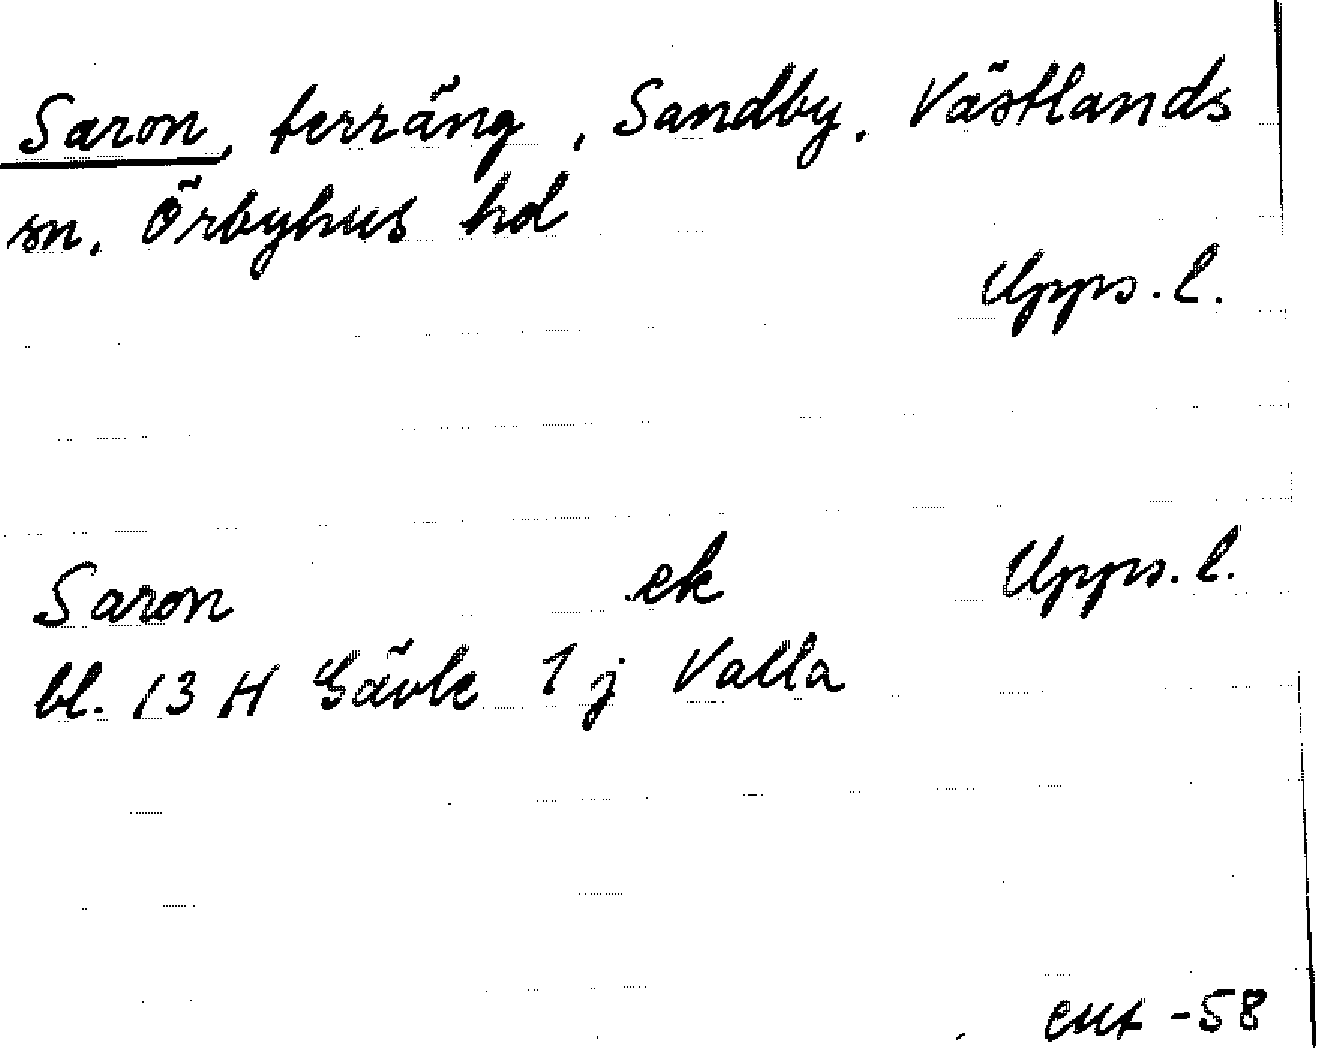 Saron, terräng, Sandby, Västlands
sn. Örbyhus hd
Upps. l.
Saron ek Upps. l.
bl. 13 H Gävle 1 j Valla
-58